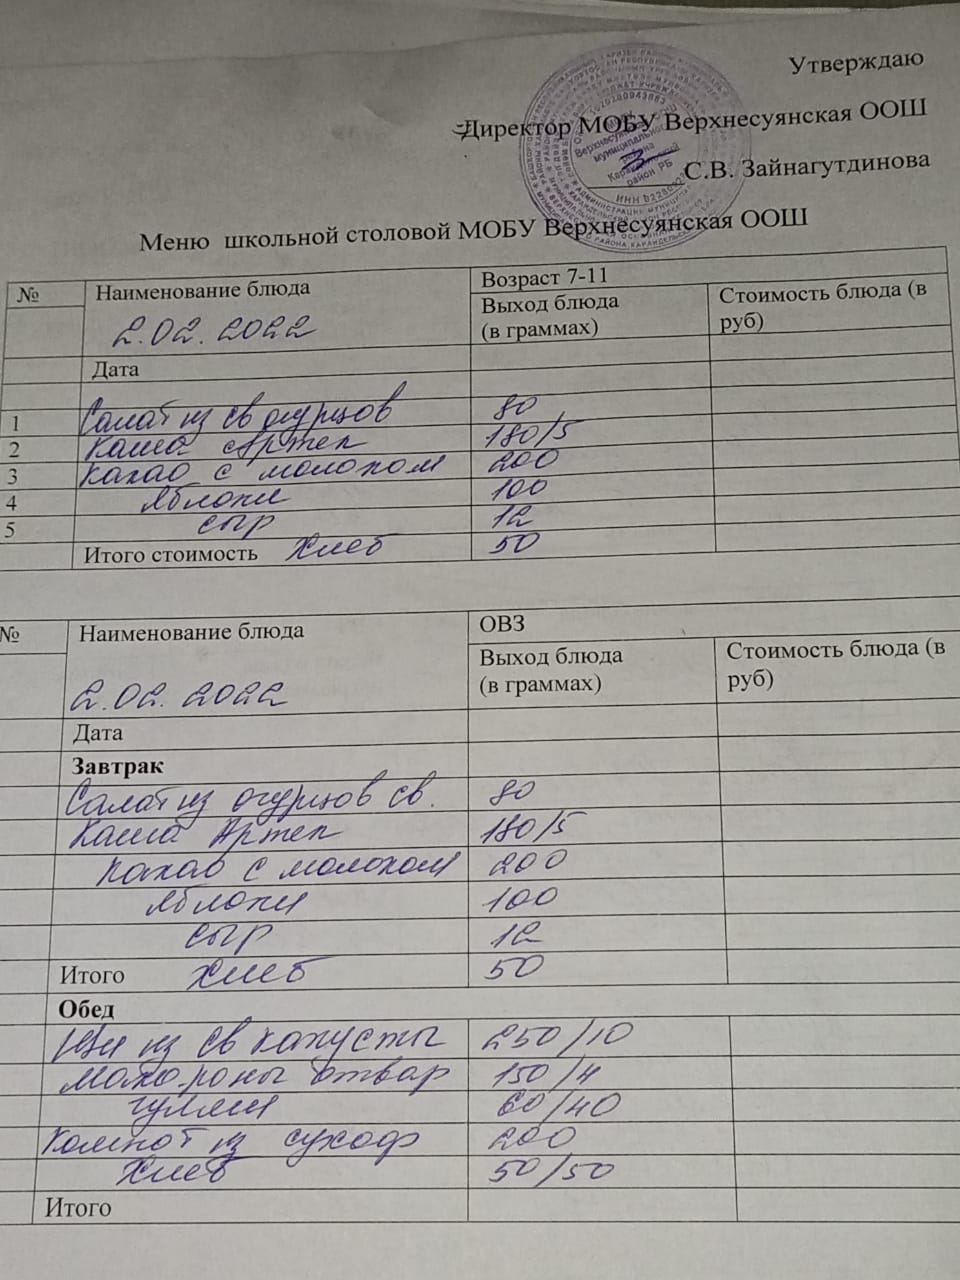 Утверждаю
Директор МОБУ Верхнесуянская ООШ
С.В. Зайнагутдинова
Меню школьной столовой МОБУ Верхнесуянская ООШ
№ Наименование блюда Возраст 7-11
2.02.2022 Выход блюда (в граммах) Стоимость блюда (в руб)
Дата
1 Салат из св огурцов 80
2 Каша Артек 180/5
3 Какао с молоком 200
4 Яблоки 100
5 сыр 12
Итого стоимость Хлеб 50
№ Наименование блюда ОВЗ
2.02.2022 Выход блюда (в граммах) Стоимость блюда (в руб)
Дата
Завтрак
Салат из огурцов св. 80
Каша Артек 180/5
Какао с молоком 200
Яблоки 100
сыр 12
Итого Хлеб 50
Обед
Щи из св капусты 250/10
Макороны отвар 150/4
гуляш 60/40
Компот из сухоф 200
Хлеб 50/50
Итого